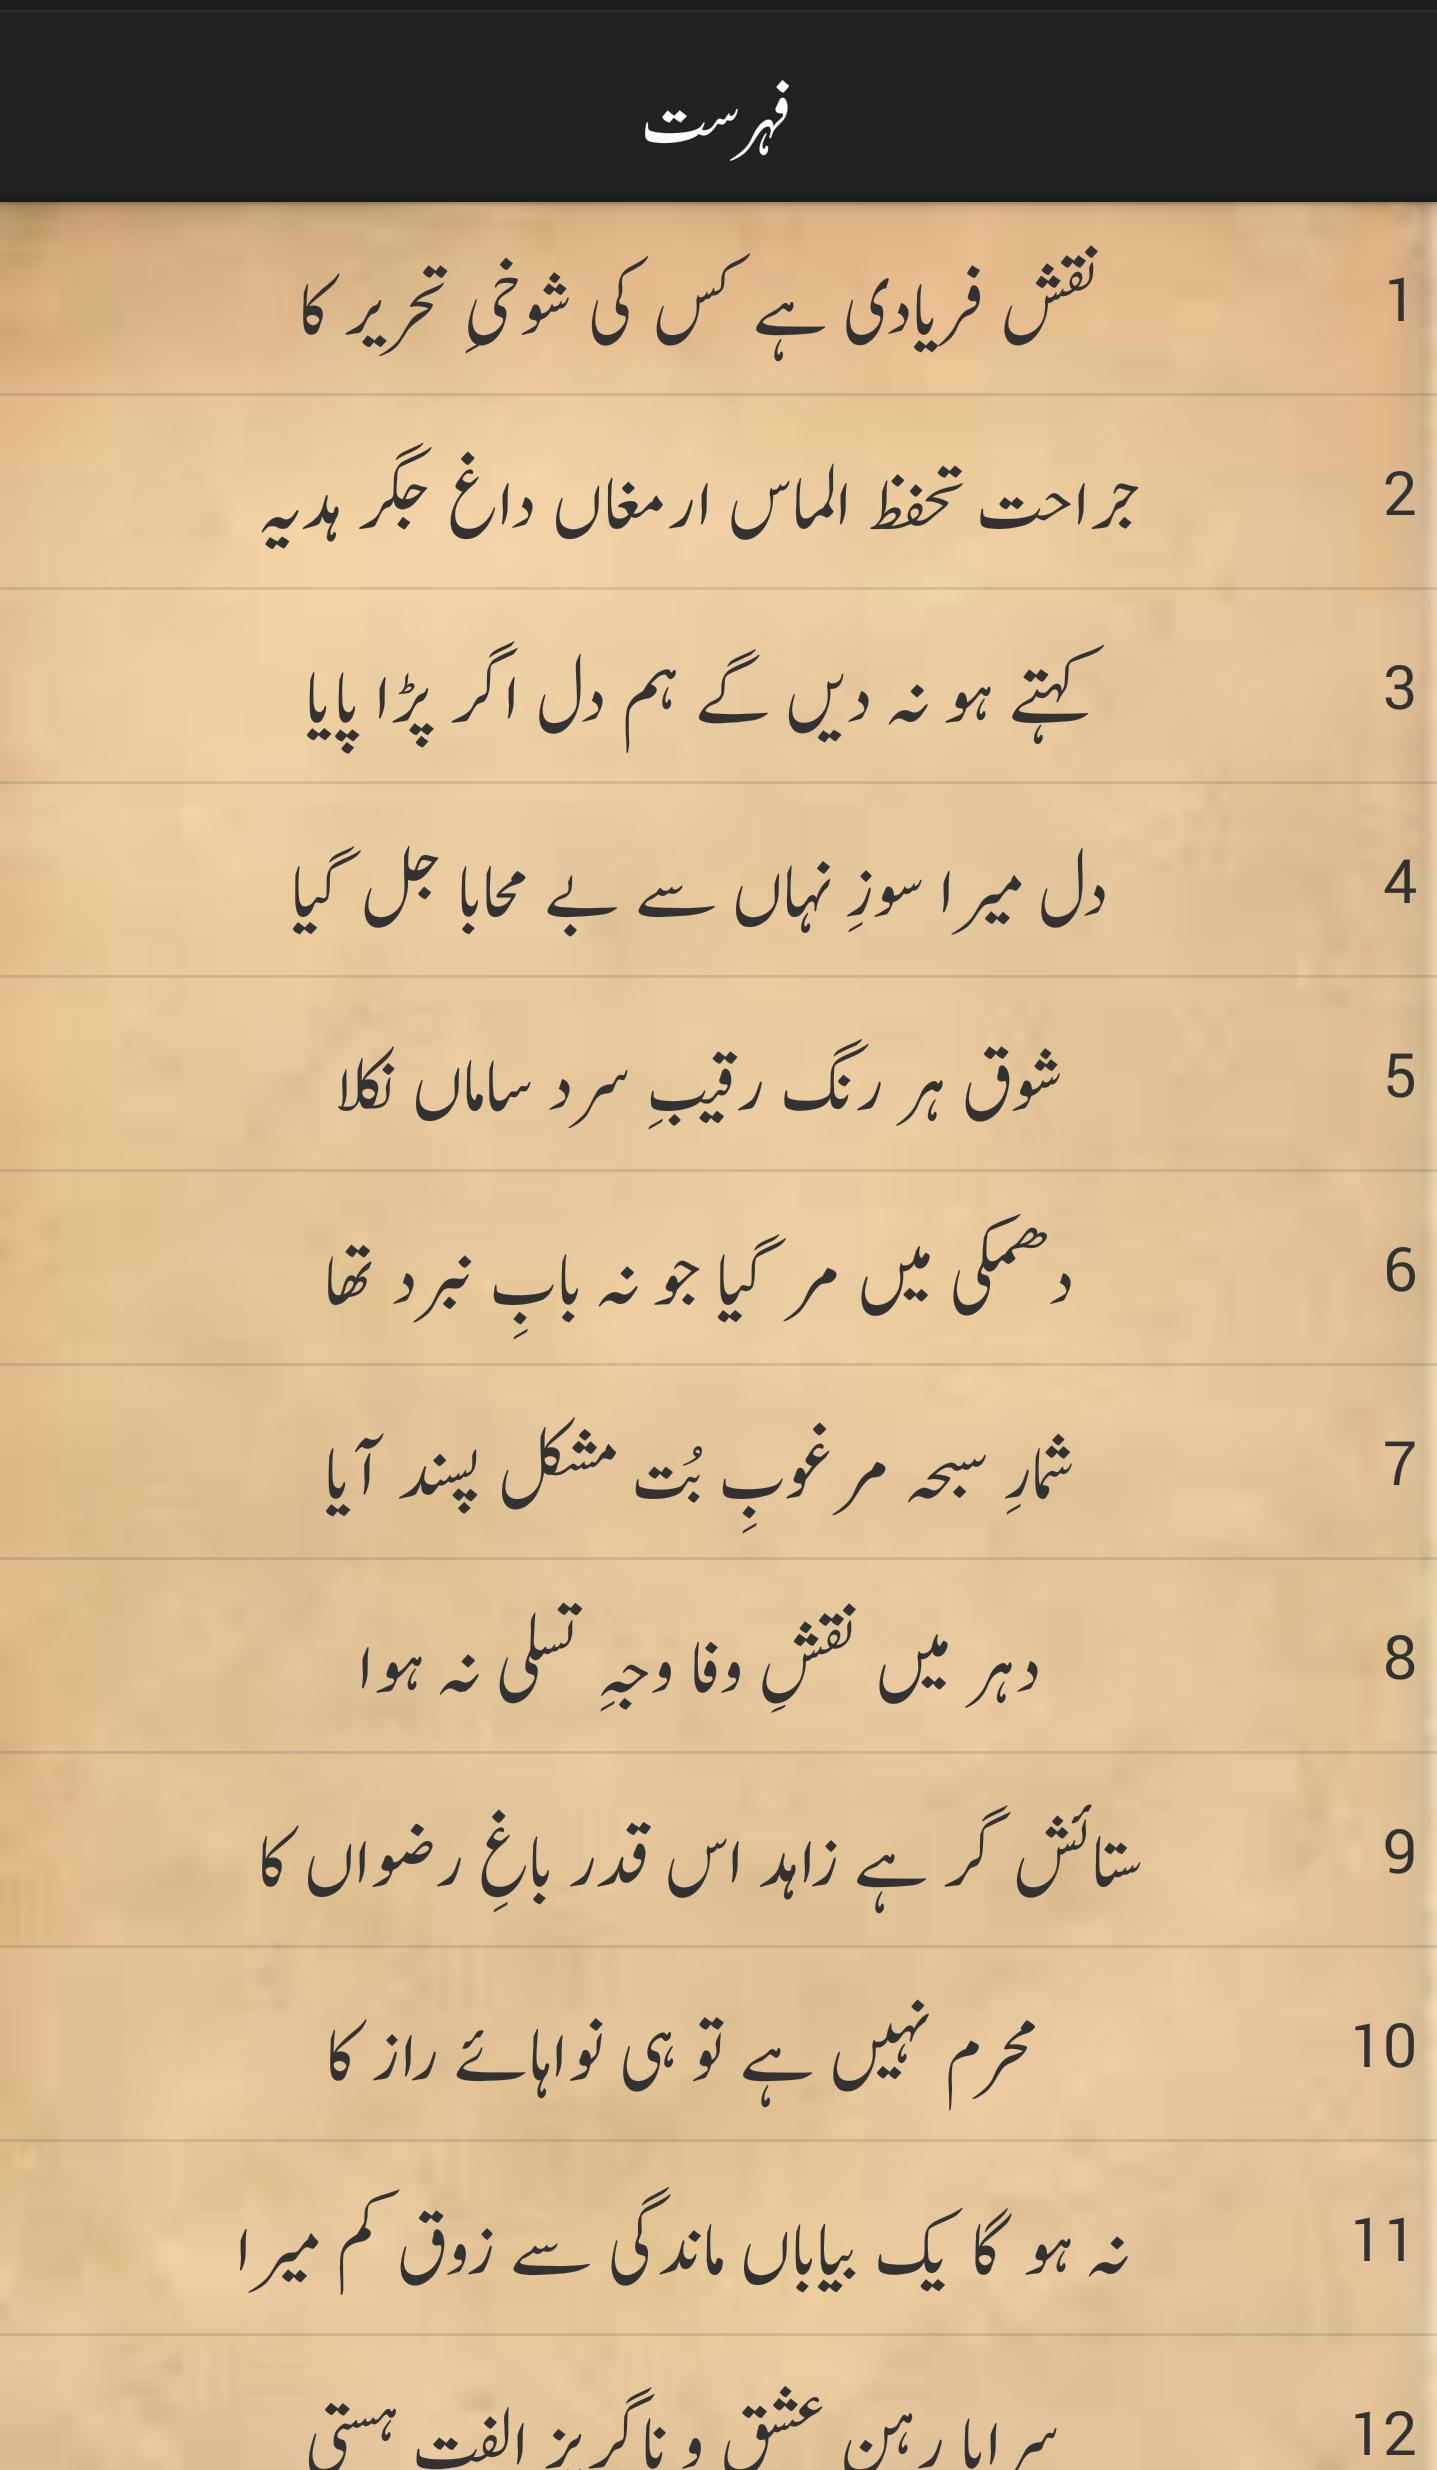 فہرست
1 نقش فریادی ہے کس کی شوخیِ تحریر کا
2 جراحت تحفظ الماس ارمغاں داغ جگر ہدیہ
3 کہتے ہو نہ دیں گے ہم دل اگر پڑا پایا
4 دل میرا سوزِ نہاں سے بے محابا جل گیا
5 شوق ہر رنگ رقیبِ سرد ساماں نکلا
6 دھمکی میں مر گیا جو نہ بابِ نبرد تھا
7 شمارِ سبحہ مرغوبِ بُت مشکل پسند آیا
8 دہر میں نقشِ وفا وجہِ تسلی نہ ہوا
9 ستائش گر ہے زاہد اس قدر باغِ رضواں کا
10 محرم نہیں ہے تو ہی نواہائے راز کا
11 نہ ہو گا یک بیاباں ماندگی سے زوق کم میرا
12 سراپا رہن عشق و ناگریز الفت ہستی